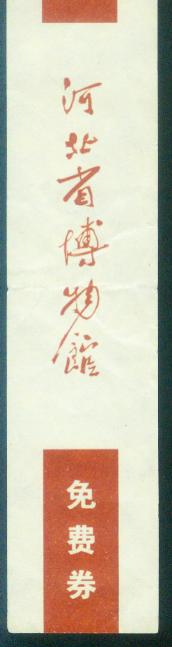 河北省博物館
免费券